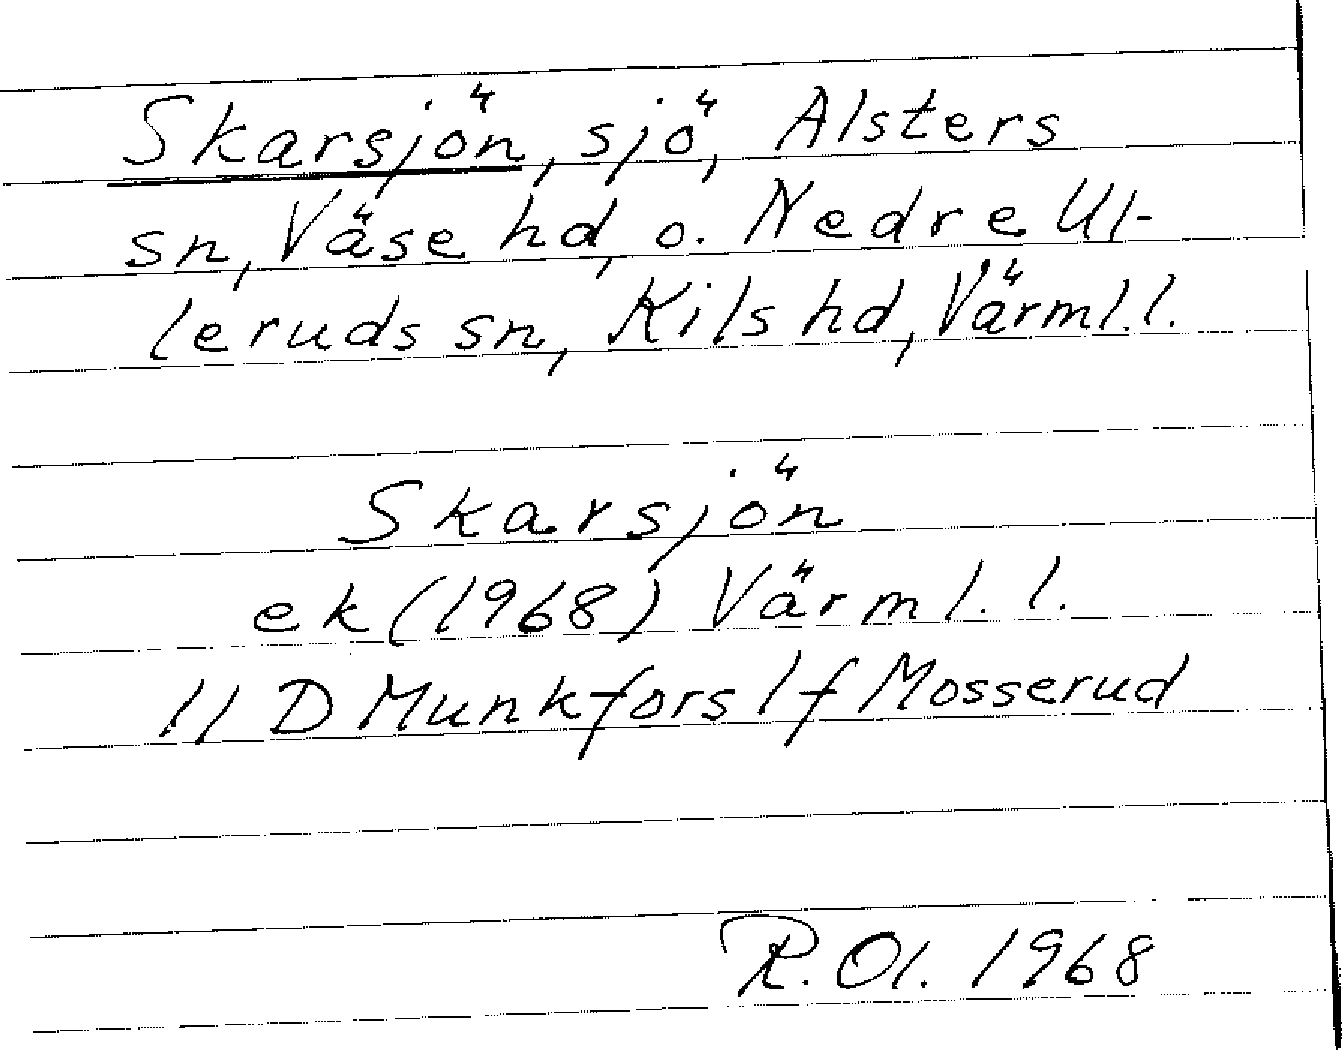 Skarsjön, sjö, Alsters
sn, Väse hd, o. Nedre Ul-
leruds sn, Kils hd, Värml.l.
Skarsjön
ek (1968) Värml. l.
11 D Munkfors lf Mosserud
R.Ol. 1968